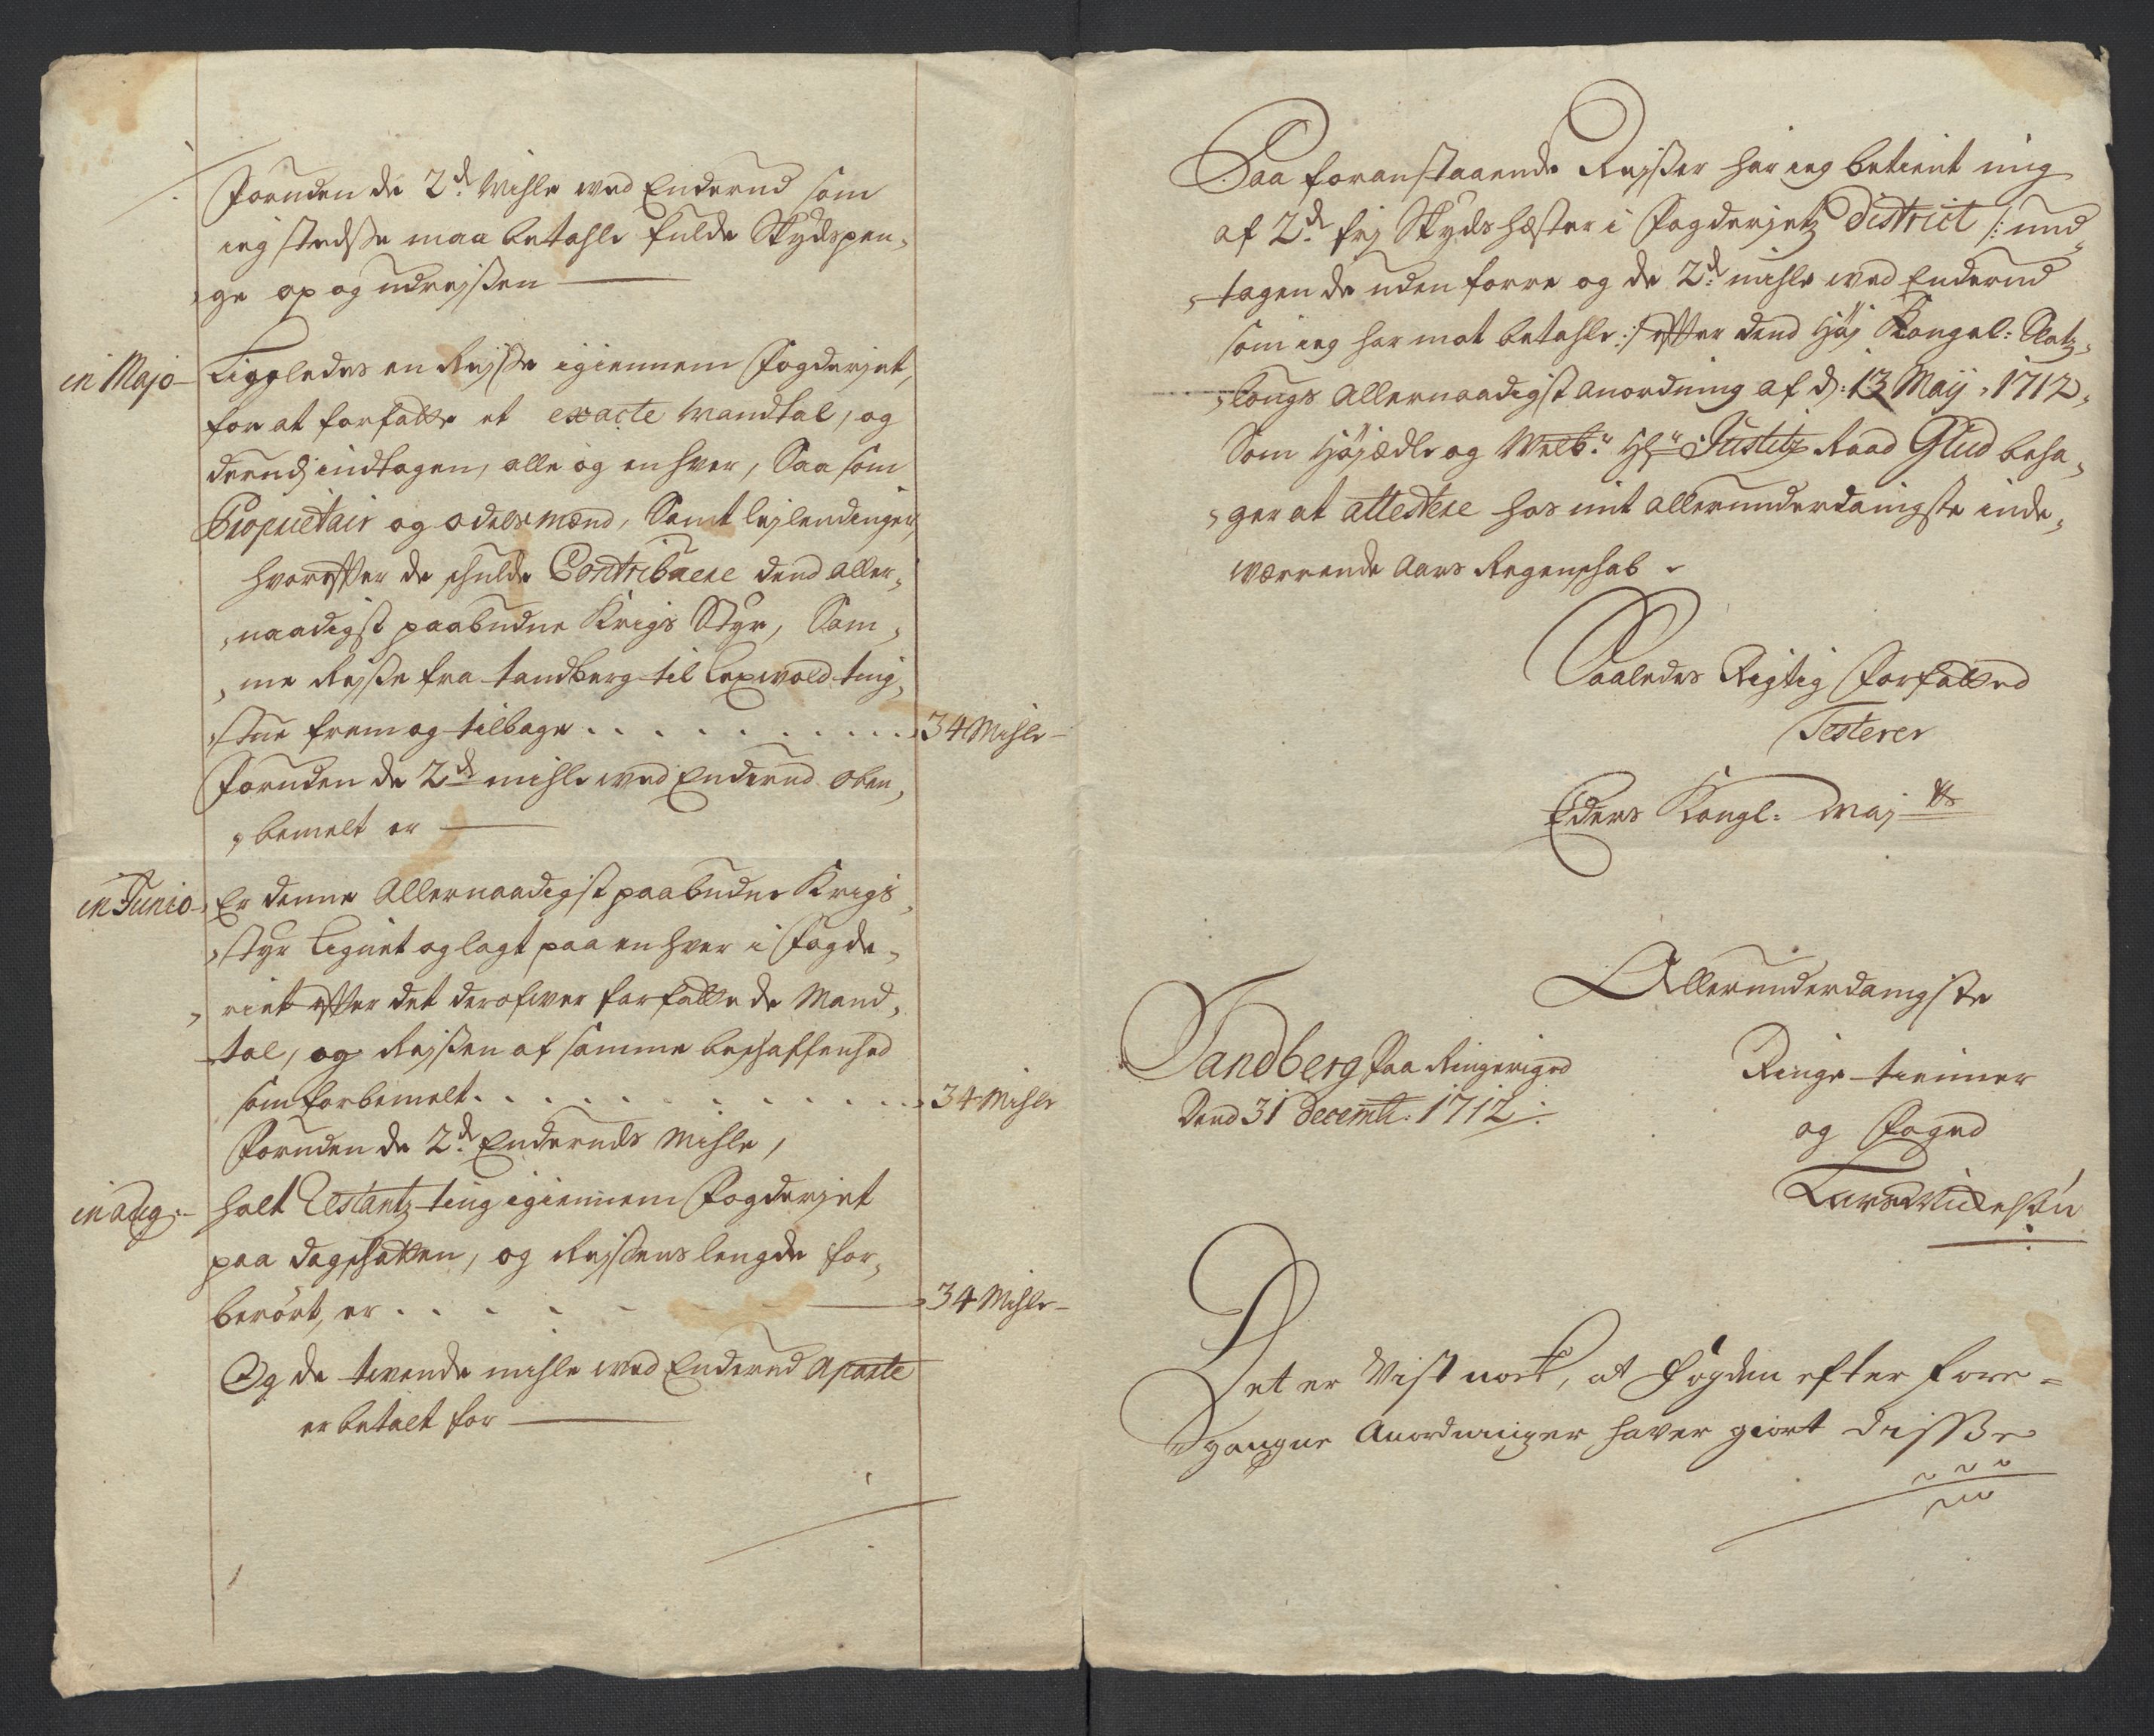 Foruden de 2d Mihle ved Enderud som
ieg stedsse maa betahle fulde Skydspen¬
ge op og udrejssen
in Majo Liggledes en Rejsse igiennem Fogderjet,
for at forfatte et exacte Mandtal, og
derudj indtagen, alle og enhver, Saa som
Proprietair og odelsmænd, Samt lejlendinger,
hvorefter de schulde Contribuere dend aller¬
naadigst paabudne Krigs Styr, Sam¬
me Rejsse fra tandberg til Lexvold ting¬
stue frem og tilbage . . . . . . . . . . . 34 Mihle
Foruden de 2d mihle ved Enderud oben¬
bemelt er
in Junio Er denne Allernaadigst paabudne Krigs¬
styr Lignet og lagt paa en hver i Fogde¬
riet efter det derofwer forfattede Mand¬
tal, og Rejssen af samme beschaffenhed
som forbemelt . . . . . . . . . . . . 34 Mihle
Foruden de 2d Enderuds Mihle,
in aug: holt Restantz ting igiennem Fogderjet
paa dagschatten, og Rejssens lengde for¬
berørt, er . . . . . . 34 Mihle
Og de tvende mihle ved Enderud Aparte
er betalt for
Paa foranstaaende Rejsser har ieg betient mig
af 2d frj Skydshæster i Fogderjetz District /: und¬
tagende uden forre og de 2d mihle ved Enderud
som ieg har mot betahle :/ efter dend Høj Kongel: Slotz¬
lougs Allernaadigst anordning af d: 13 Maij 1712,
Som Højædle og Welb: Hr Justitz Raad Glud beha¬
ger at attestere hos mit allerunderdanigste inde¬
værrende Aars Regenschab
Saaledes Rigtig Forfatted
Testerer
Eders Kongl: Maj ts
Allerunderdanigste
Tandberg paa Ringerige
Dend 31 Decemb: 1712
Ringe tienner
og Foged
Det er Vist nock, at Fogden efter fore¬
gangne Anordninger haver giort disse